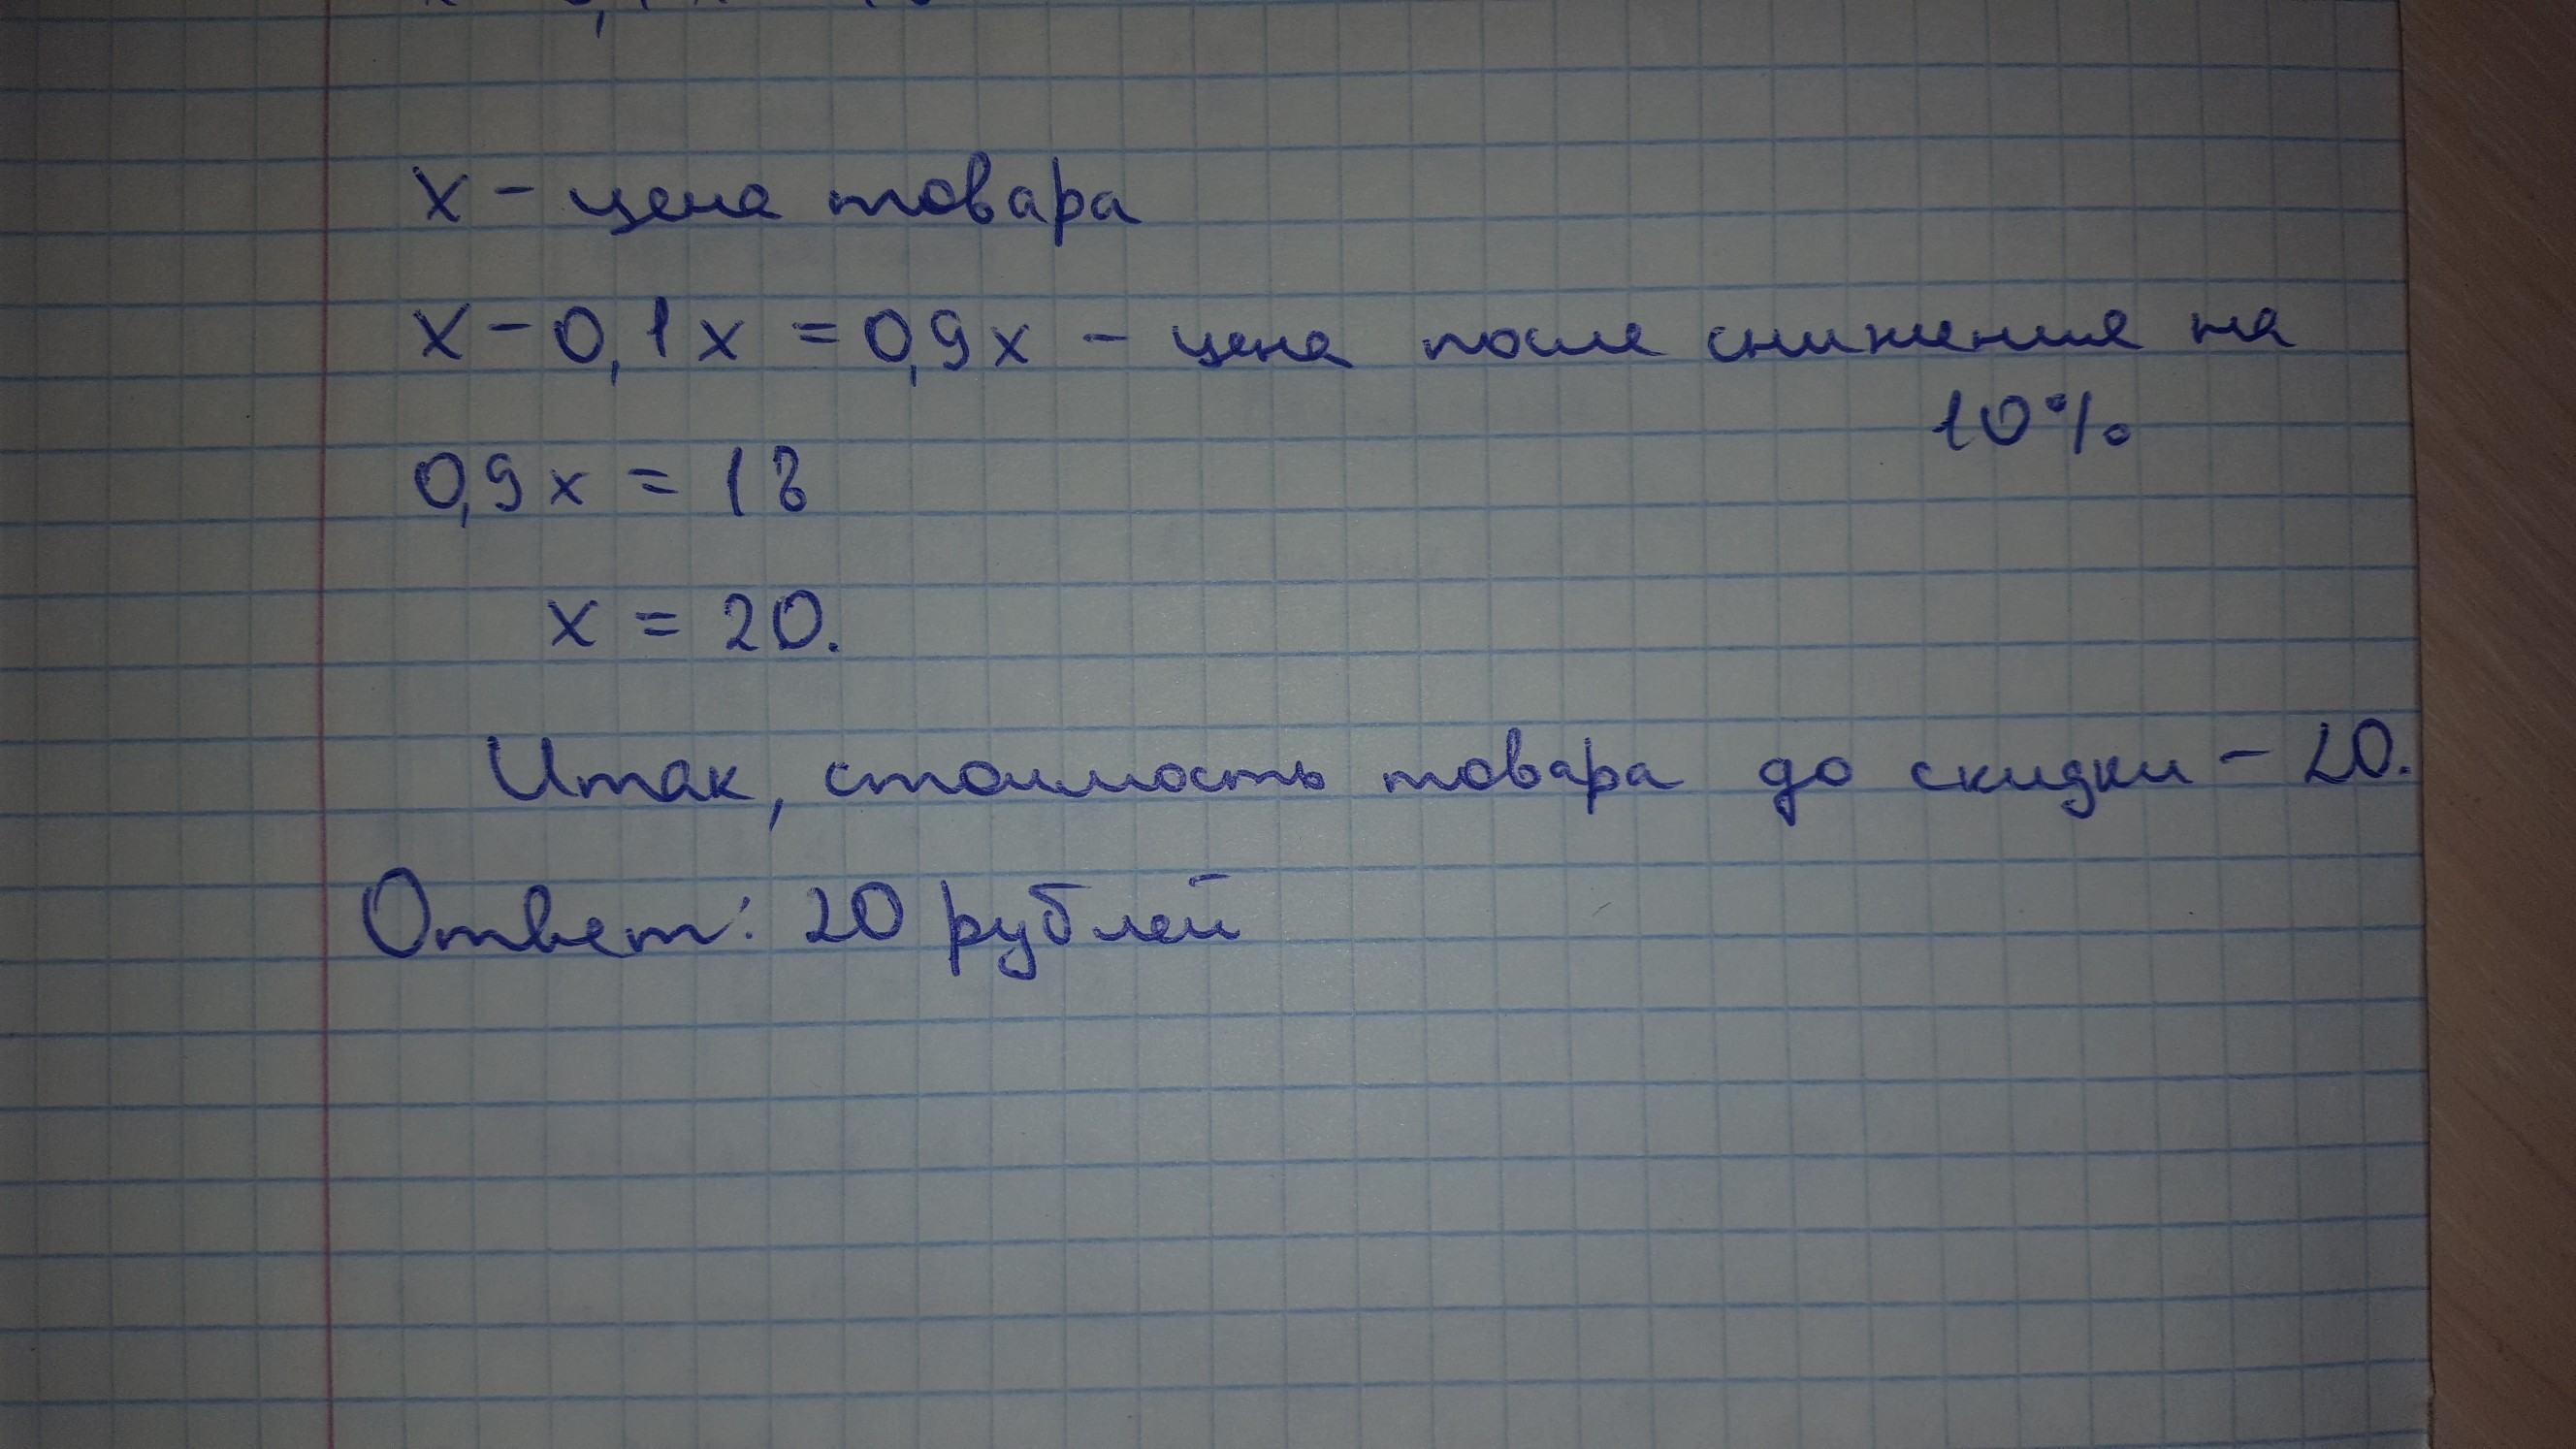 x - цена товара
x - 0,1x = 0,9x - цена после снижения на
10%
0,9x = 18
x = 20.
Итак, стоимость товара до скидки - 20.
Ответ: 20 рублей